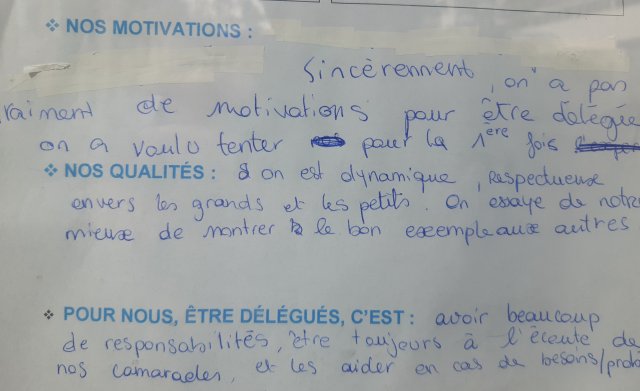 ❖ NOS MOTIVATIONS :
Sincèrennent, on a pas
vraiment de motivations pour être délégée
on a voulu tenter pour la 1ere fois
❖ NOS QUALITÉS : on est dynamique, respectueuse
envers les grands et les petits. On essaye de notre
mieux de montrer le bon exemple aux autres
❖ POUR NOUS, ÊTRE DÉLÉGUÉS, C'EST : avoir beaucoup
de responsabilités, être toujours à l'écoute de
nos camarades, et les aider en cas de besoins/prob